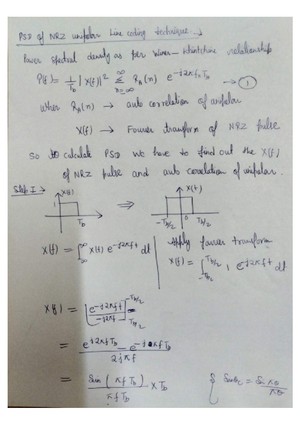 PSD of NRZ unipolar Line coding technique →
Power spectral density as per Wiener - Khintchine relationship
P(f) = 1/Tb |X(f)|² Σ Ra(n) e^-j2πfnTb → ①
When Ra(n) → auto correlation of unipolar
X(f) → Fourier transform of NRZ pulse
So to calculate PSD we have to find out the X(f)
of NRZ pulse and auto correlation of unipolar.
Step I → X(t) ⇒ X(t)
1 Tb -Tb/2 0 Tb/2
X(f) = ∫ x(t) e^-j2πft dt | Apply fourier transform
X(f) = ∫ 1 e^-j2πft dt
X(f) = [e^-j2πft / -j2πf]
= / 2jπf
= Sin(πfTb) / πfTb × Tb